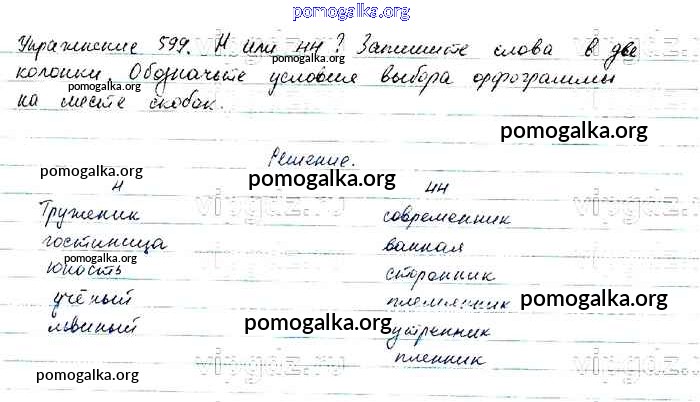 pomogalka.org
Упражнение 599. Н или нн? Запишите слова в две
pomogalka.org
колонки. Обозначьте условия выбора орфограммы
pomogalka.org
на месте скобок.
pomogalka.org
Решение.
pomogalka.org pomogalka.org
н нн
Труженик современник
vipgdz.ru vipgdz.ru
гостиница ванная
pomogalka.org
юность сторонник
учёный племянник pomogalka.org
pomogalka.org
львиный утренник
пленник
pomogalka.org
vipgdz.ru vipgdz.ru